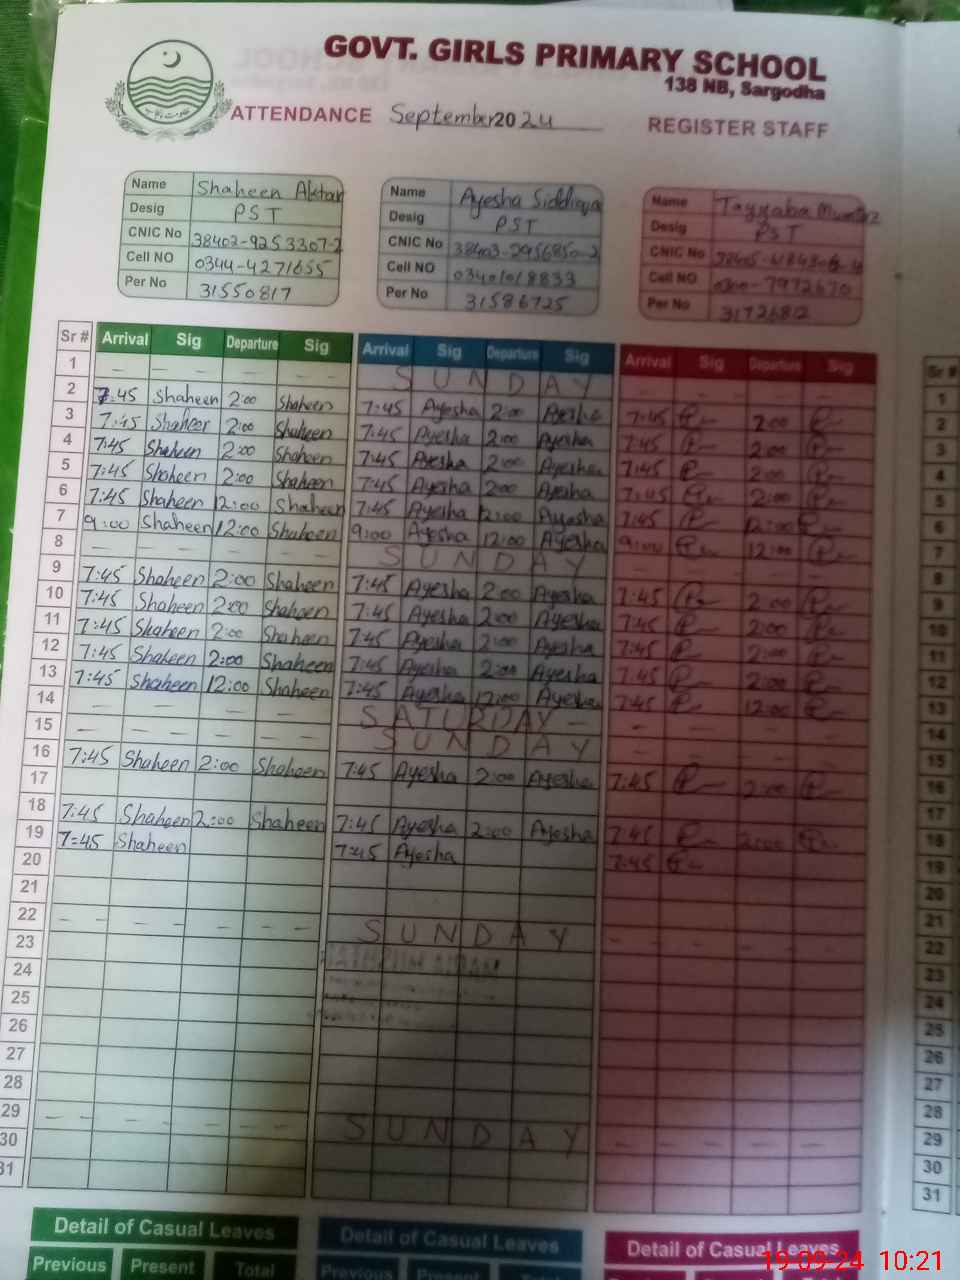 GOVT. GIRLS PRIMARY SCHOOL
138 NB, Sargodha
ATTENDANCE September 2024 REGISTER STAFF
Name Shaheen Aktar Name Ayesha Siddiqa Name Tayyaba Mumtaz
Desig PST Desig PST Desig PST
CNIC No 38402-9253307-2 CNIC No 38403-2956850-2 CNIC No
Cell NO 0344-4271655 Cell NO 03401018833 Cell NO
Per No 31550817 Per No 31586725 Per No 3172682
Sr # Arrival Sig Departure Sig Arrival Sig Departure Sig Arrival Sig Departure Sig Sr #
1 — — — — — — SUNDAY — — — — 1
2 7:45 Shaheen 2:00 Shaheen 7:45 Ayesha 2:00 Ayesha 7:45 2:00 2
3 7:45 Shaheen 2:00 Shaheen 7:45 Ayesha 2:00 Ayesha 7:45 2:00 3
4 7:45 Shaheen 2:00 Shaheen 7:45 Ayesha 2:00 Ayesha 7:45 2:00 4
5 7:45 Shaheen 2:00 Shaheen 7:45 Ayesha 2:00 Ayesha 7:45 2:00 5
6 7:45 Shaheen 12:00 Shaheen 7:45 Ayesha 12:00 Ayesha 7:45 12:00 6
7 9:00 Shaheen 12:00 Shaheen 9:00 Ayesha 12:00 Ayesha 9:00 12:00 7
8 — — — — — — SUNDAY — — — — 8
9 7:45 Shaheen 2:00 Shaheen 7:45 Ayesha 2:00 Ayesha 7:45 2:00 9
10 7:45 Shaheen 2:00 Shaheen 7:45 Ayesha 2:00 Ayesha 7:45 2:00 10
11 7:45 Shaheen 2:00 Shaheen 7:45 Ayesha 2:00 Ayesha 7:45 2:00 11
12 7:45 Shaheen 2:00 Shaheen 7:45 Ayesha 2:00 Ayesha 7:45 2:00 12
13 7:45 Shaheen 12:00 Shaheen 7:45 Ayesha 12:00 Ayesha 7:45 12:00 13
14 — — — — — SATURDAY — — — — 14
15 — — — — — — SUNDAY — — — — 15
16 7:45 Shaheen 2:00 Shaheen 7:45 Ayesha 2:00 Ayesha 7:45 2:00 16
17 17
18 7:45 Shaheen 2:00 Shaheen 7:45 Ayesha 2:00 Ayesha 7:45 2:00 18
19 7:45 Shaheen 7:45 Ayesha 7:45 19
20 20
21 21
22 — — — — — — SUNDAY — — — — 22
23 23
24 24
25 25
26 26
27 27
28 28
29 — — — — — — SUNDAY — — — — 29
30 30
31 31
Detail of Casual Leaves Detail of Casual Leaves Detail of Casual Leaves
Previous Present Total Previous Present Total
19-09-24 10:21